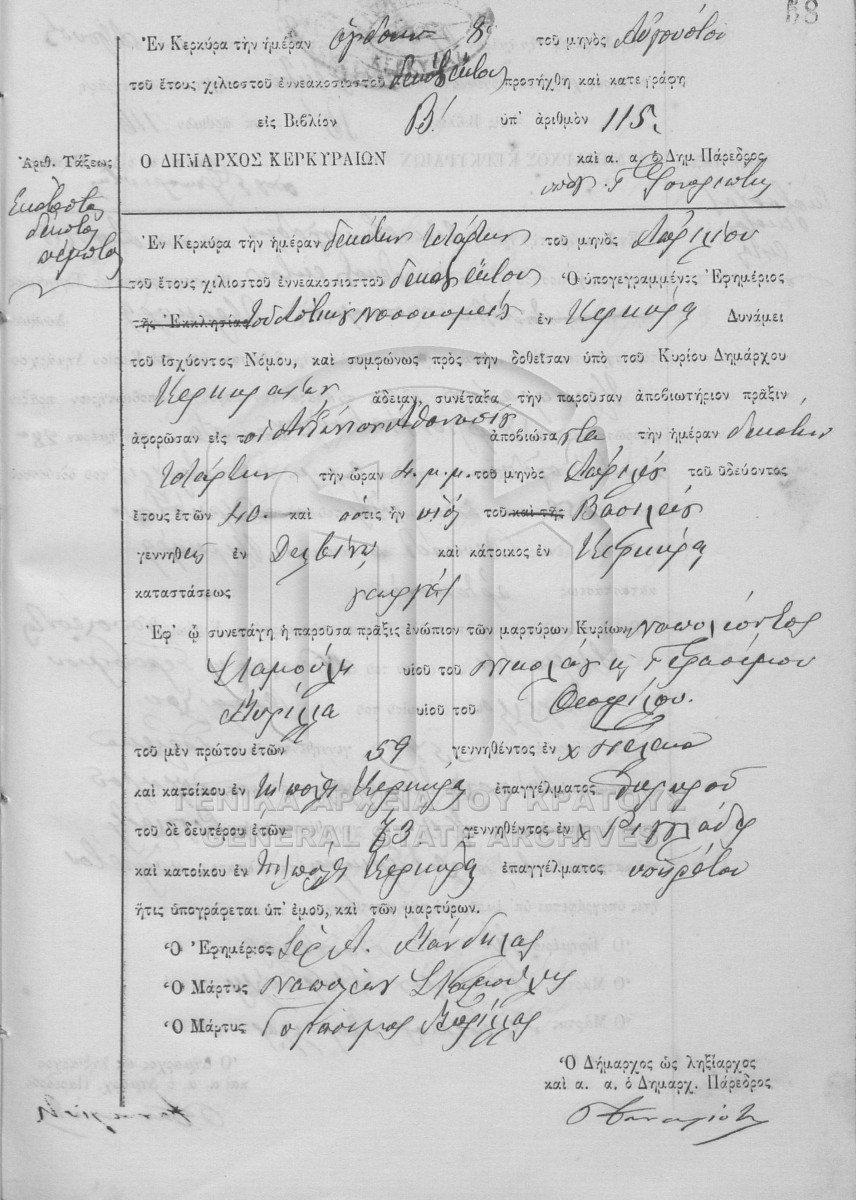 58
Ἐν Κερκύρᾳ τὴν ἡμέραν ὀγδόην 8ην τοῦ μηνὸς Αὐγούστου
τοῦ ἔτους χιλιοστοῦ ἐννεακοσιοστοῦ δεκάτου ἕκτου προσήχθη καὶ κατεγράφη
εἰς Βιβλίον Β! ὑπ' ἀριθμὸν 115
Ἀριθ. Τάξεως
Ο ΔΗΜΑΡΧΟΣ ΚΕΡΚΥΡΑΙΩΝ καὶ α. α. ὁ Δημ Πάρεδρος
Ἑκατοστὸς
δέκατος
πέμπτος
Ἐν Κερκύρᾳ τὴν ἡμέραν δεκάτην τετάρτην τοῦ μηνὸς Ἀπριλίου
τοῦ ἔτους χιλιοστοῦ ἐννεακοσιοστοῦ δεκάτου ἕκτου Ὁ ὑπογεγραμμένος Ἐφημέριος
τῆς Ἐκκλησίας τοῦ Νοσοκομείου ἐν Κερκύρᾳ Δυνάμει
τοῦ ἰσχύοντος Νόμου, καὶ συμφώνως πρὸς τὴν δοθεῖσαν ὑπὸ τοῦ Κυρίου Δημάρχου
Κερκυραίων ἄδειαν, συνέταξα τὴν παροῦσαν ἀποβιωτήριον πρᾶξιν
ἀφορῶσαν εἰς τὸν Ἀθανασίου ἀποβιώσαντα τὴν ἡμέραν δεκάτην
τετάρτην τὴν ὥραν 4. μ.μ. τοῦ μηνὸς Ἀπριλίου τοῦ ὁδεύοντος
ἔτους ἐτῶν 40. καὶ ὅστις ἦν υἱὸς τοῦ καὶ τῆς Βασιλείου
γεννηθεὶς ἐν Δελβίνῳ καὶ κάτοικος ἐν Κερκύρᾳ
καταστάσεως γεωργὸς
Ἐφ' ᾧ συνετάγη ἡ παροῦσα πρᾶξις ἐνώπιον τῶν μαρτύρων Κυρίων Ναπολέοντος
Σταμούλη υἱοῦ τοῦ Νικολάου κ Γερασίμου
Κυρίλλα υἱοῦ τοῦ Θεοφίλου.
τοῦ μὲν πρώτου ἐτῶν 59 γεννηθέντος ἐν χ Πέλεκα
καὶ κατοίκου ἐν τῇ πόλει Κερκύρᾳ ἐπαγγέλματος θυρωροῦ
τοῦ δὲ δευτέρου ἐτῶν 73 γεννηθέντος ἐν χ Ριγγλάδες
καὶ κατοίκου ἐν τῇ πόλει Κερκύρᾳ ἐπαγγέλματος
ἥτις ὑπογράφεται ὑπ' ἐμοῦ, καὶ τῶν μαρτύρων.
Ὁ Ἐφημέριος Ἱερ. Α. Μάνδηλας
Ὁ Μάρτυς Ναπολέων Σταμούλης
Ὁ Μάρτυς Γεράσιμος Κυρίλλας
Ὁ Δήμαρχος ὡς ληξίαρχος
καὶ α. α. ὁ Δημαρχ. Πάρεδρος
ΓΕΝΙΚΑ ΑΡΧΕΙΑ ΤΟΥ ΚΡΑΤΟΥΣ
GENERAL STATE ARCHIVES